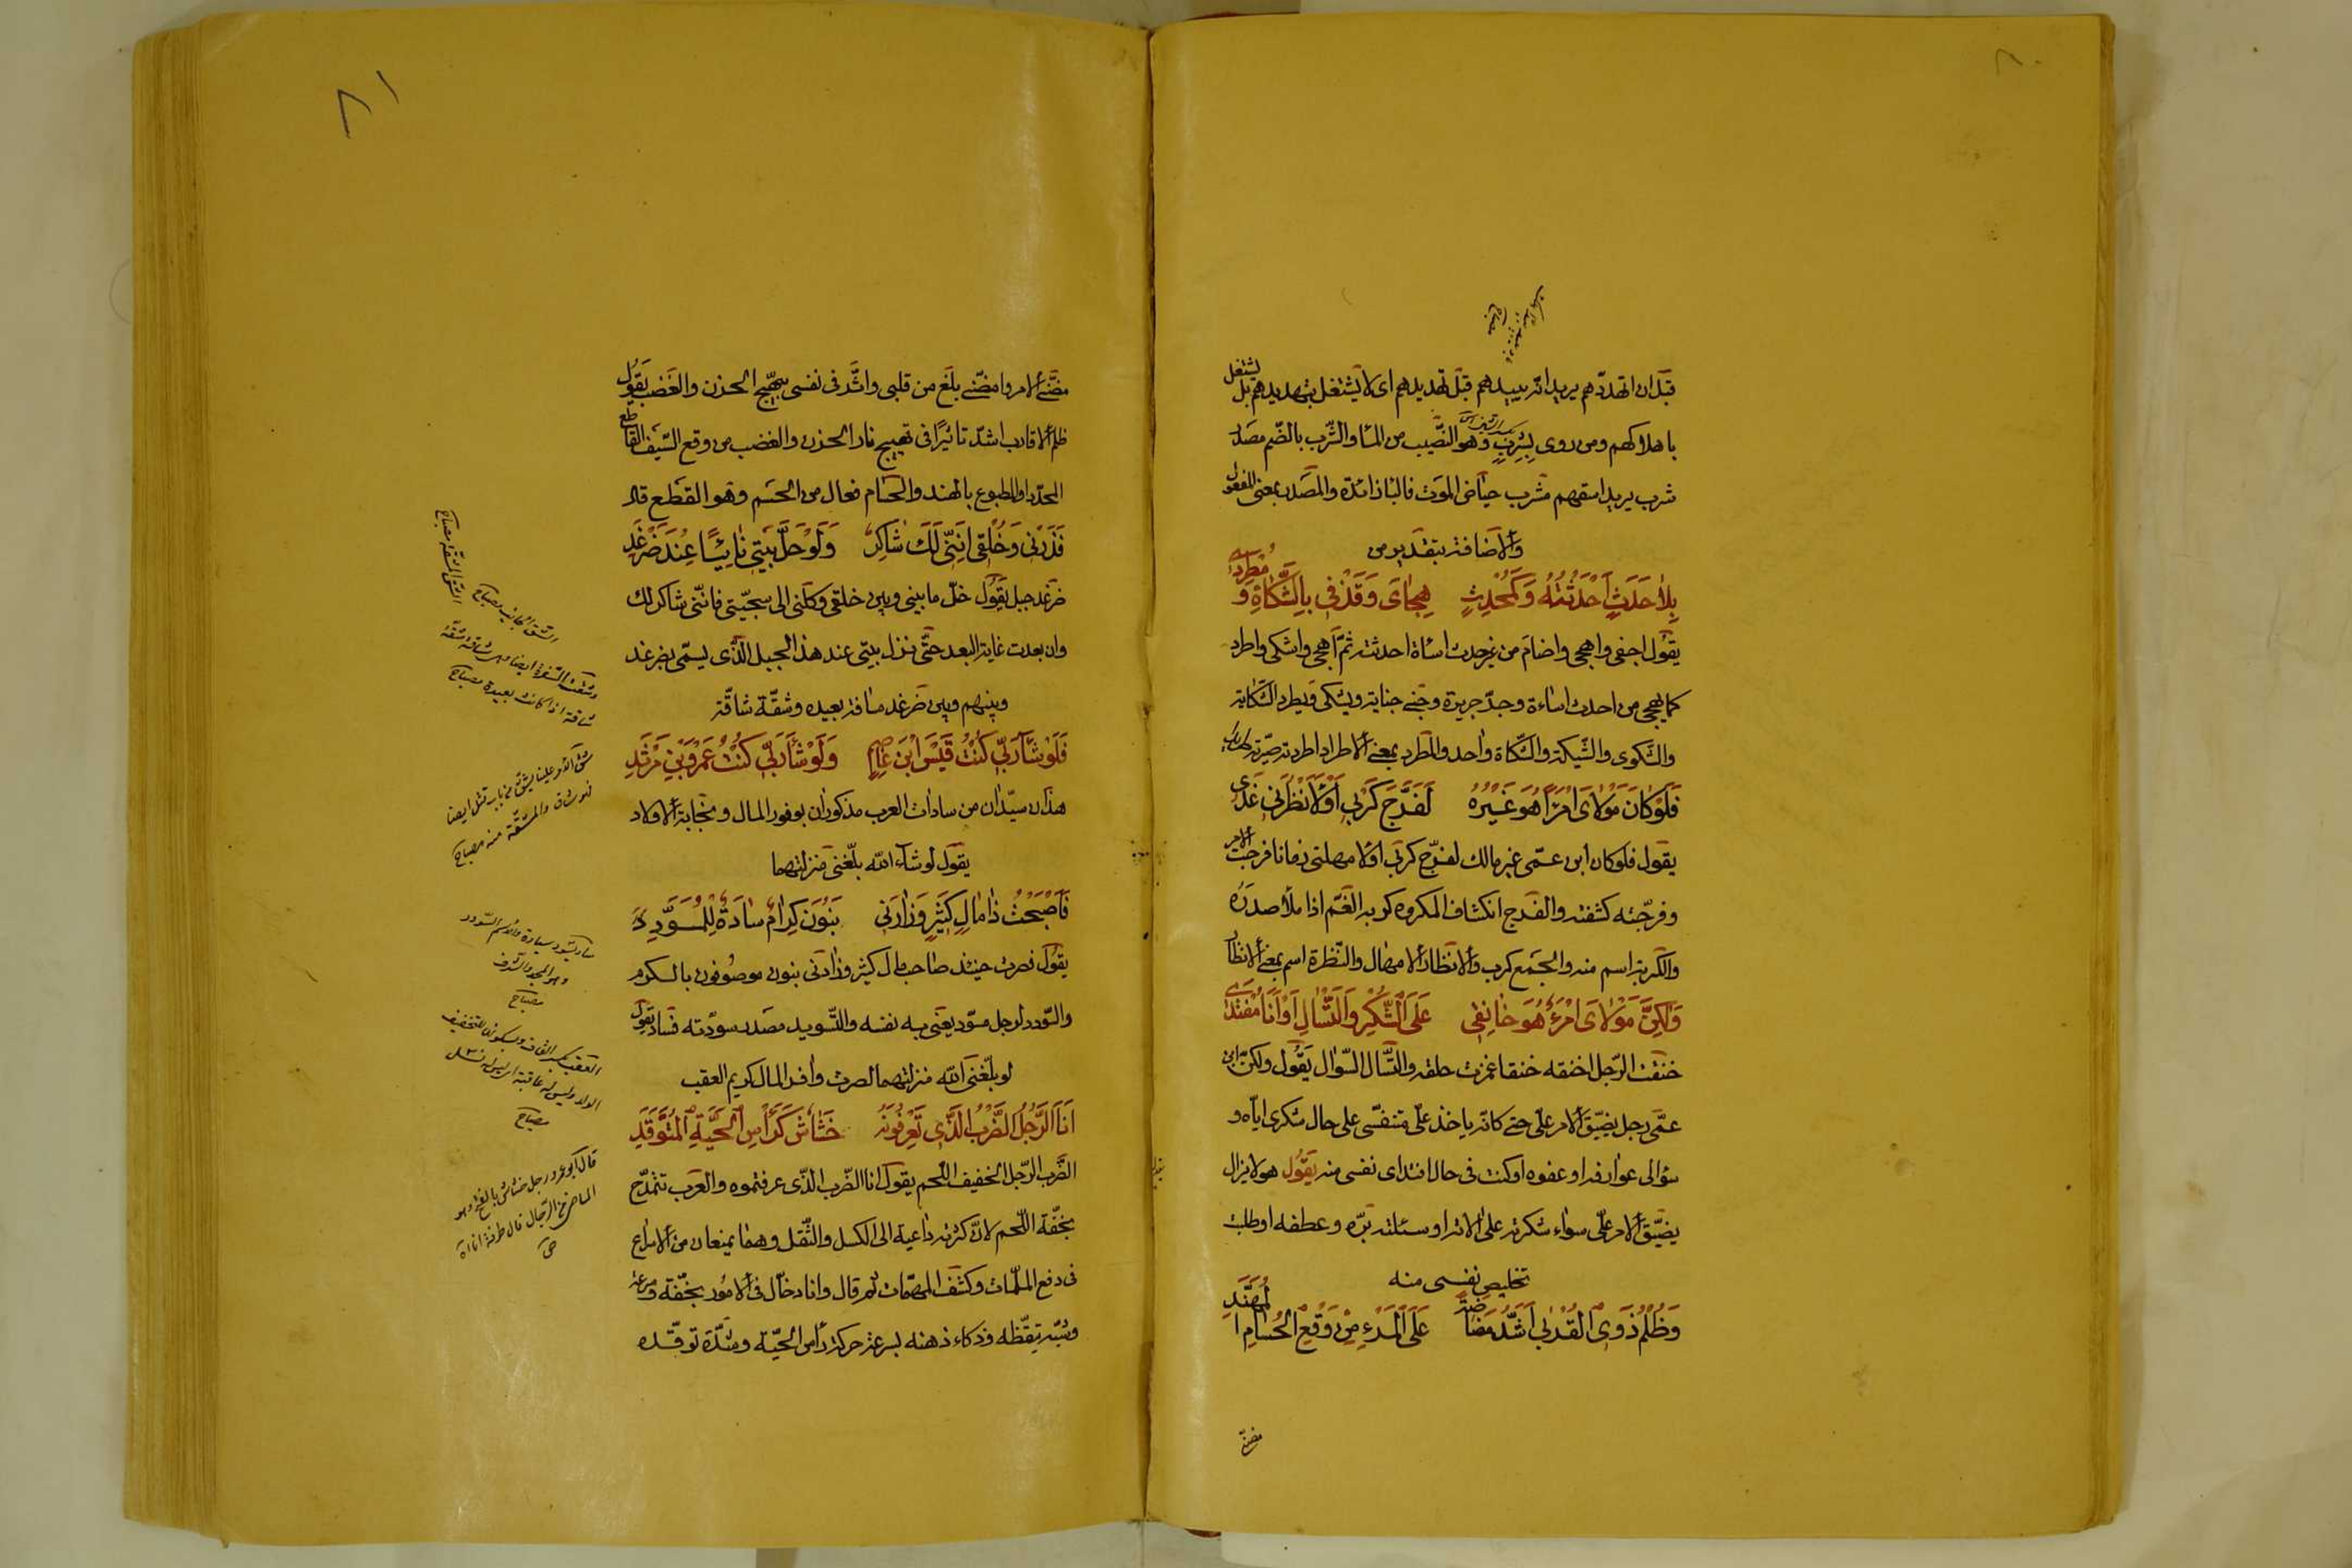 قبل ان اتهددهم يريد انه يبيدهم قبل تهديدهم اى لا يشتغل بتهديدهم بل يشتغل
باهلاكهم ومن روى بشرب وهو النصيب من الماء والشرب بالضم مصدر
شرب يريد اسقهم شرب حياض الموت فالباء زائدة والمصدر بمعنى المفعول
والاضافة بتقدير من
بِلا حَدَثٍ اَحْدَثْتُهُ وَكَمُحْدِثٍ هِجائى وَقَذْفى بِالشَّكاةِ وَمُطْرَدى
يقول اجفى واهجى واضام من غير حدث اساءة احدثته ثم اهجى واشكى واطرد
كما يهجى من احدث اساءة وجر جريرة وجنى جناية ويشكى ويطرد الشكاية
والشكوى والشيكة والشكاة واحد والمطرد بمعنى الاطراد اطردته صيرته طريدا
فَلَوْ كانَ مَوْلاىَ امْرَأً هُوَ غَيْرُهُ لَفَرَّجَ كَرْبى اَوْ لَاَنْظَرَنى غَدى
يقول فلو كان ابن عمى غير مالك لفرج كربى او لامهلنى زمانا فرجت الامر
وفرجته كشفته والفرج انكشاف المكروه كربه الغم اذا ملأ صدره
والكربة اسم منه والجمع كرب والانظار الامهال والنظرة اسم بمعنى الانظار
وَلكِنَّ مَوْلاىَ امْرَءٌ هُوَ خانِقى عَلَى الشُّكْرِ وَالتَّسْالِ اَوْ اَنَا مُفْتَدى
خنقت الرجل اخنقه خنقا غمزت حلقه والتسال السوال يقول ولكن ابن
عمى رجل يضيق الامر على حتى كانه ياخذ على متنفسى على حال شكرى اياه و
سؤالى عوارفه او عفوه او كنت فى حال افتداى نفسى منه يقول هو لا يزال
يضيق الامر على سواء شكرته على الائه او سئلته بره وعطفه او طلبت
تخليص نفسى منه
وَظُلْمُ ذَوِى الْقُرْبى اَشَدُّ مَضاضَةً عَلَى الْمَرْءِ مِنْ وَقْعِ الْحُسامِ الْمُهَنَّدِ
مضنى
مضنى الامر وامضنى بلغ من قلبى واثر فى نفسى بتهييج الحزن والغضب يقول
ظلم الاقارب اشد تاثيرا فى تهييج نار الحزن والغضب من وقع السيف القاطع
المحدد او المطبوع بالهند والحسام فعال من الحسم وهو القطع قال
فَذَرْنى وَخُلْقى اِنَّنى لَكَ شاكِرٌ وَلَوْ حَلَّ بَيْتى نائِيًا عِنْدَ ضَرْغَدِ
ضرغد جبل يقول خل ما بينى وبين خلقى وكلنى الى سجيتى فاننى شاكر لك
وان بعدت غاية البعد حتى نزل بيتى عند هذا الجبل الذى يسمى بضرغد
وبينهم وبين ضرغد مسافة بعيده وشقة شاقة
فَلَوْ شاءَ رَبّى كُنْتُ قَيْسَ ابْنَ عاصِمٍ وَلَوْ شاءَ رَبّى كُنْتُ عَمْرَو بْنَ مَرْثَدِ
هذان سيدان من سادات العرب مذكوران بوفور المال ونجابة الاولاد
يقول لو شاء الله بلغنى منزلتهما
فَاَصْبَحْتُ ذا مالٍ كَثيرٍ وَزارَنى بَنُونَ كِرامٌ سادَةٌ لِلْمُسَوَّدِ
يقول فصرت حينئذ صاحب مال كثير وزارنى بنون موصوفون بالكرم
والسودد لرجل مسود يعنى به نفسه والتسويد مصدر سودته فساد يقول
لو بلغنى الله منزلتهما لصرت وافر المال كريم العقب
اَنَا الرَّجُلُ الضَّرْبُ الَّذى تَعْرِفُونَهُ خَشاشٌ كَرَأْسِ الْحَيَّةِ الْمُتَوَقِّدِ
الضرب الرجل الخفيف اللحم يقول انا الضرب الذى عرفتموه والعرب تتمدح
بخفة اللحم لان كثرته داعية الى الكسل والثقل وهما يمنعان من الاسراع
فى دفع الملمات وكشف المهمات ثم قال وانا دخال فى الامور بخفة وسرعة
وشبه تيقظه وذكاء ذهنه بسرعة حركة راس الحية وشدة توقده
الشق المشقة مصباح
الشق الجانب مصباح
وشقت السفرة ايضا وهى شاقة شقة
شاقة اذا كانت بعيدة مصباح
شق الامر علينا يشق من باب قتل ايضا
فهو شاق والمشقة منه مصباح
ساد يسود سيادة والاسم السودد
وهو المجد والشرف
مصباح
العقب بكسر القاف وبسكونها للتخفيف
الولد وليس له عاقبة اى ليس له نسل
مصباح
قال ابو عمرو رجل خشاش بالفتح وهو
الماضى من الرجال قال طرفة انا اه